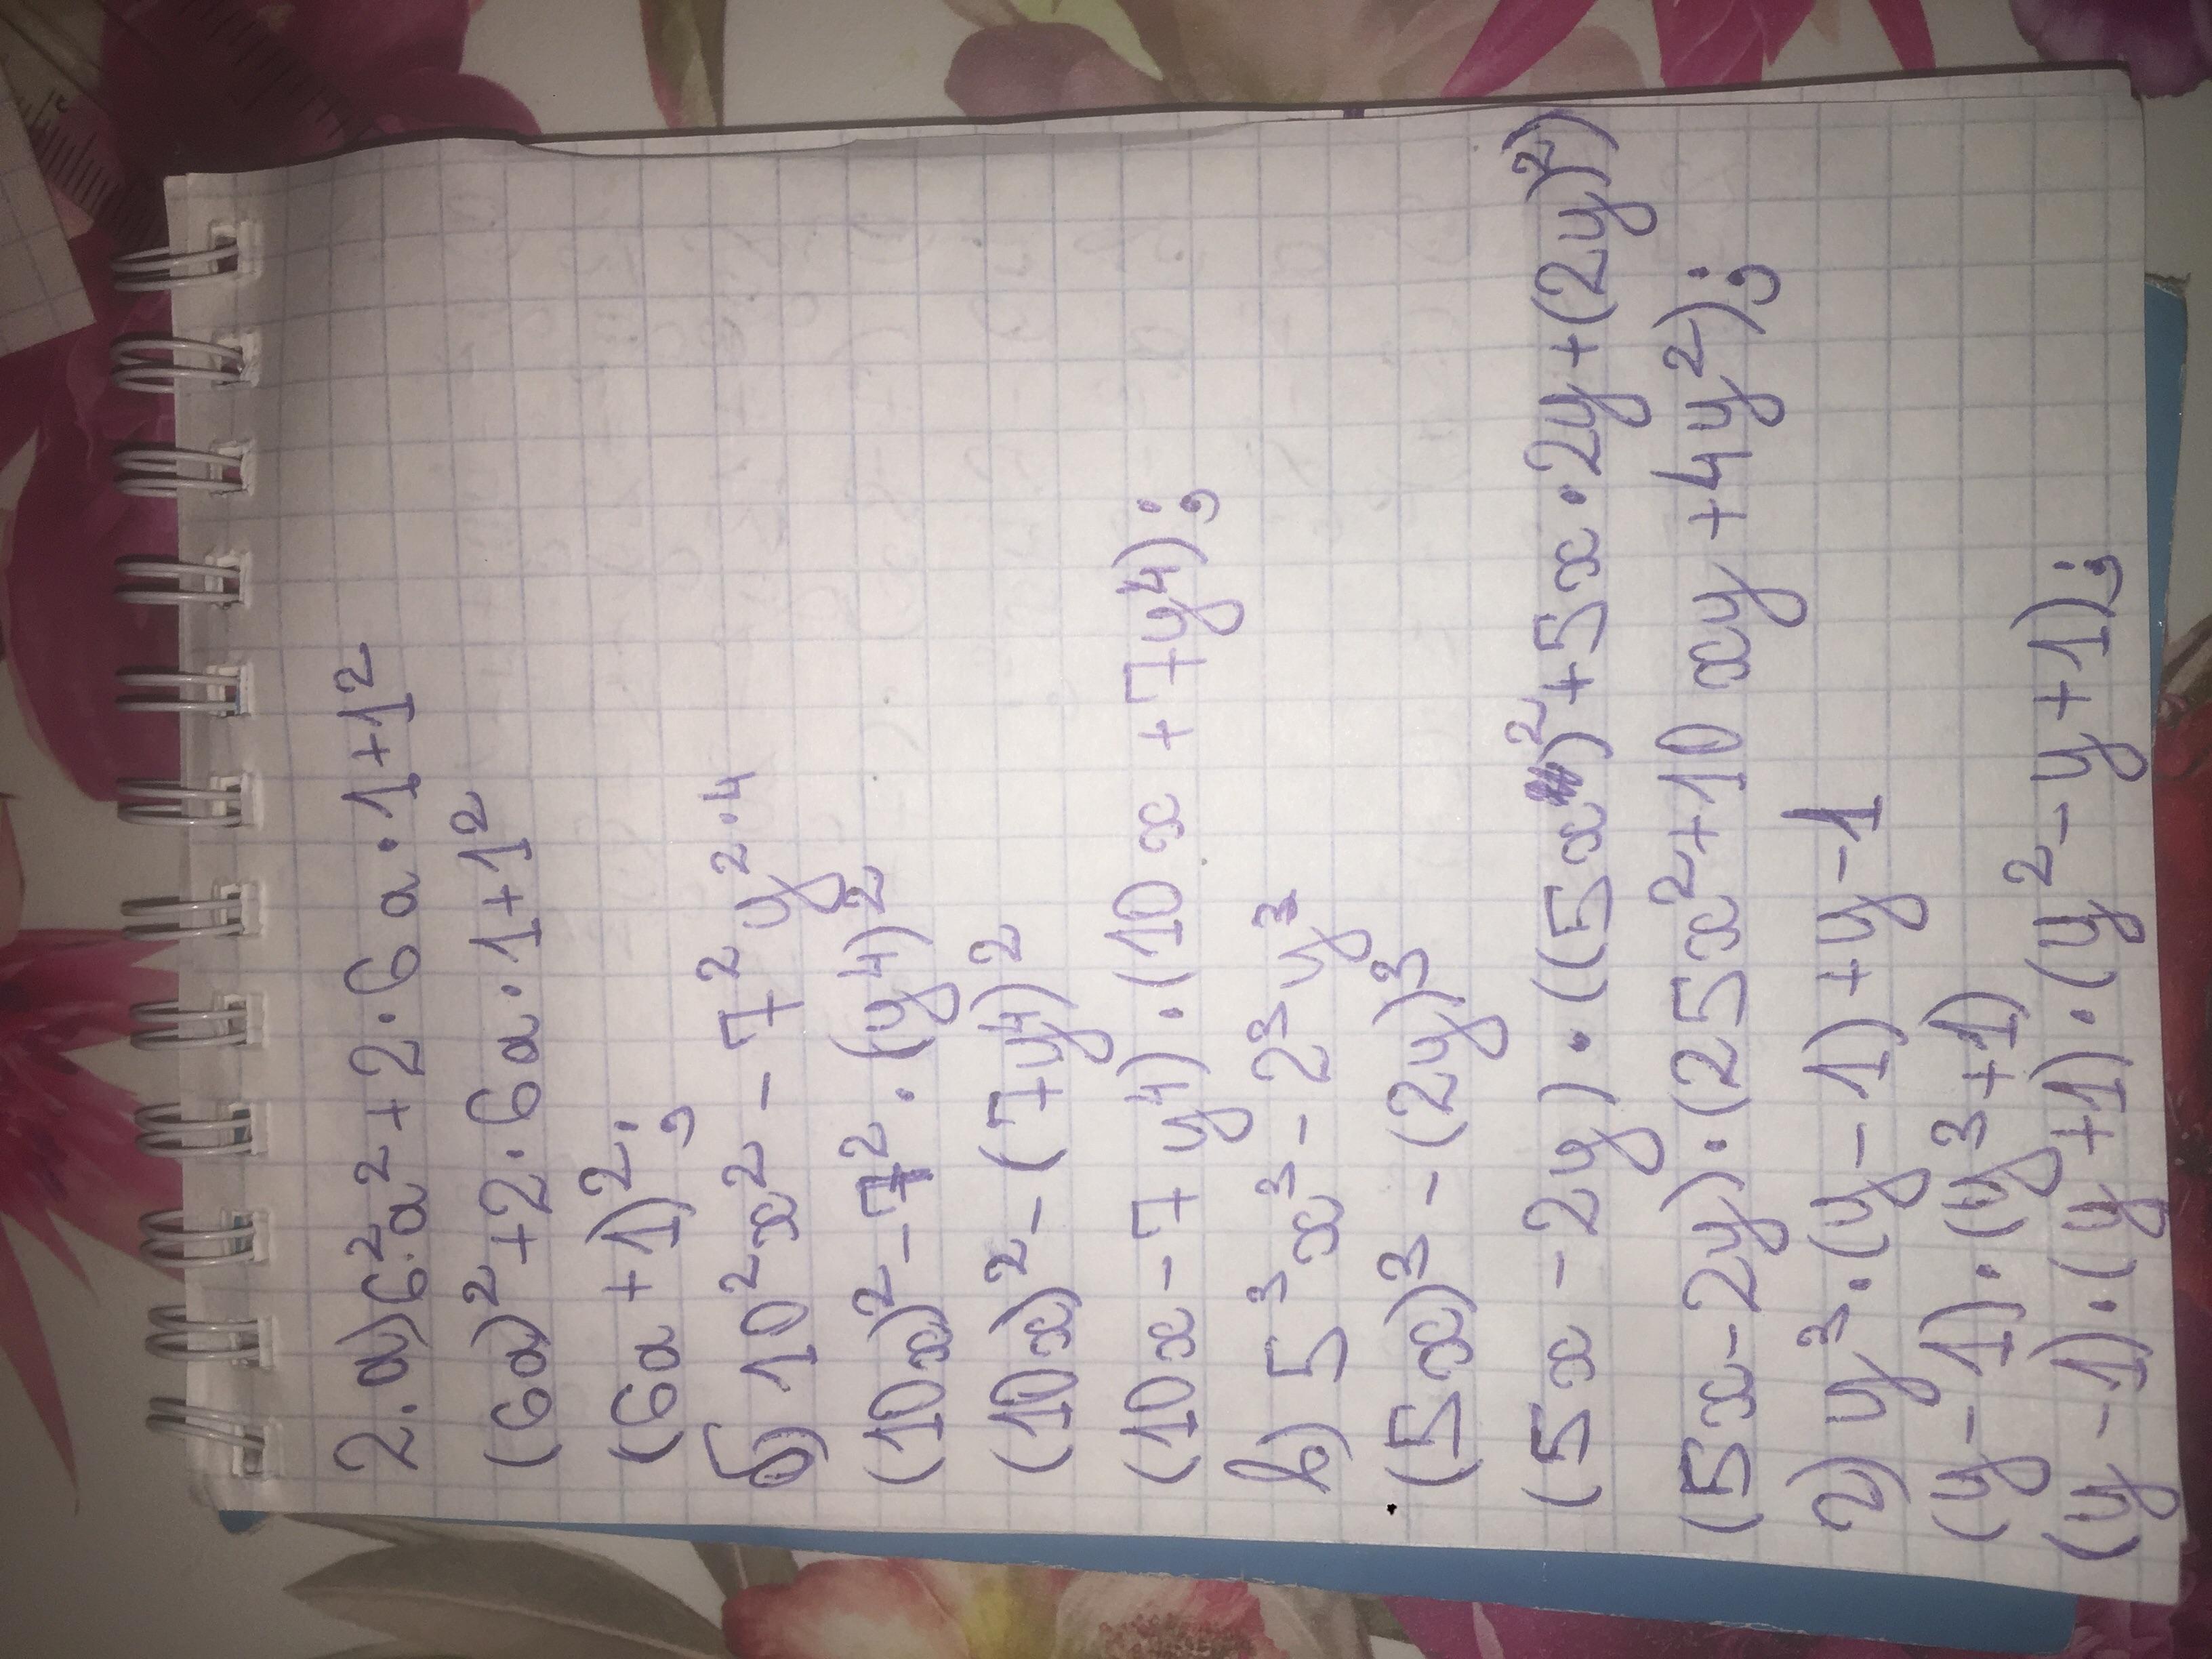 2. а) 6²·a² + 2·6a·1 + 1²
(6a)² + 2·6a·1 + 1²
(6a + 1)²;
б) 10²x² - 7²y²·⁴
(10x)² - 7²·(y⁴)²
(10x)² - (7y⁴)²
(10x - 7y⁴)·(10x + 7y⁴);
в) 5³x³ - 2³y³
(5x)³ - (2y)³
(5x - 2y)·((5x)² + 5x·2y + (2y)²)
(5x - 2y)·(25x² + 10xy + 4y²);
г) y³·(y - 1) + y - 1
(y - 1)·(y³ + 1)
(y - 1)·(y + 1)·(y² - y + 1);